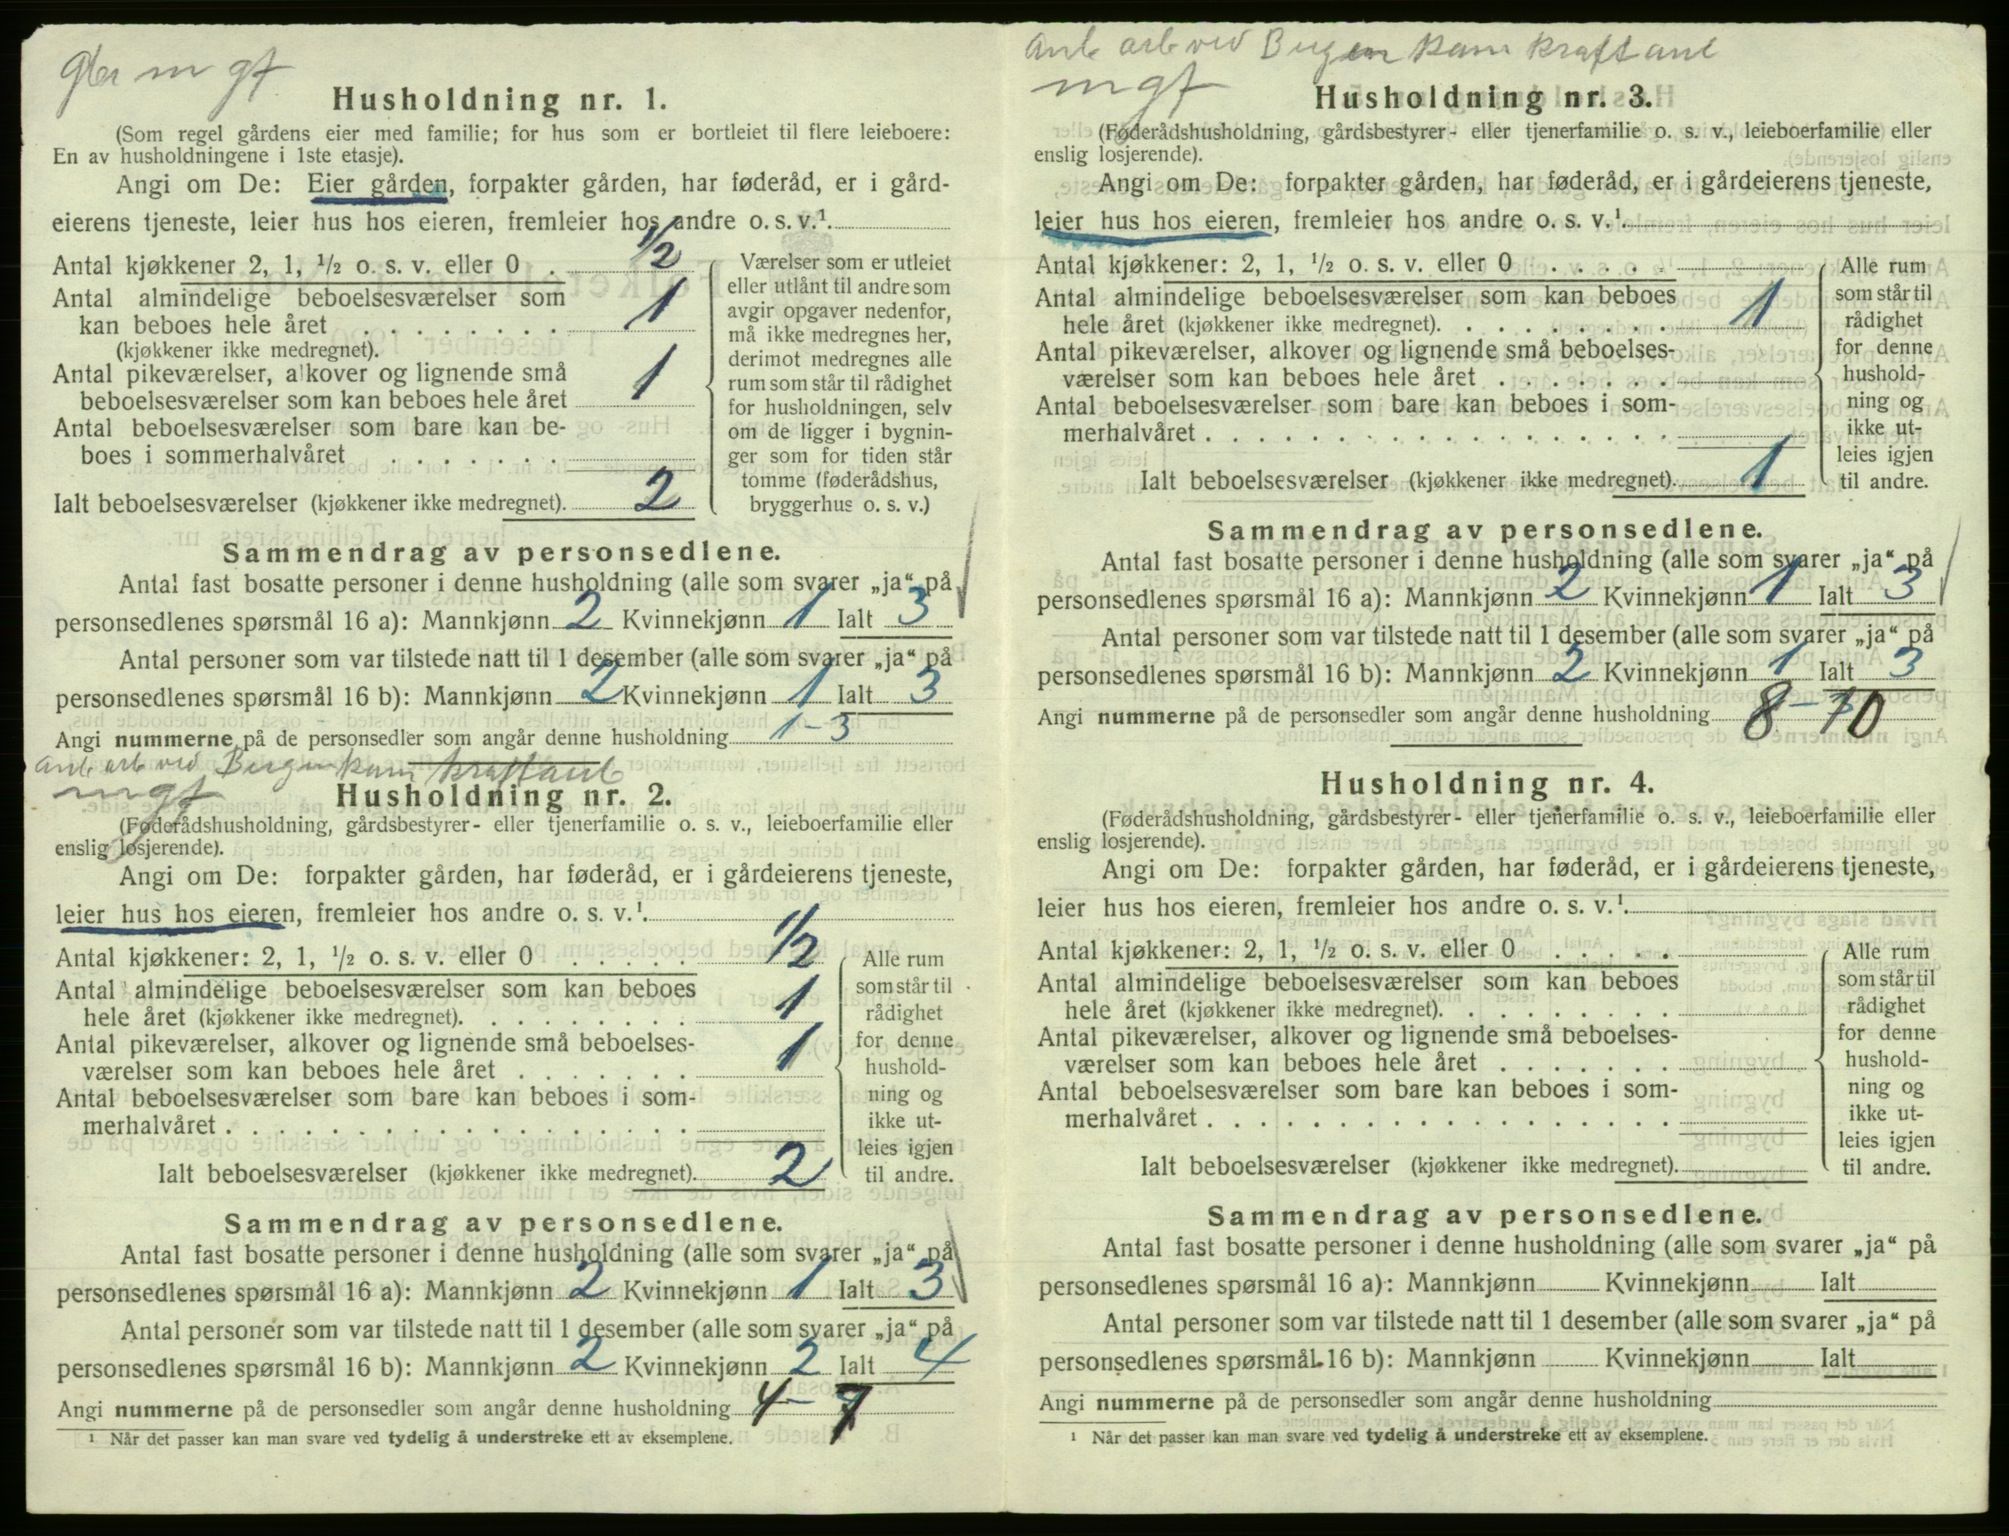 m gf
Husholdning nr. 1.
(Som regel gårdens eier med familie; for hus som er bortleiet til flere leieboere:
En av husholdningene i 1ste etasje).
Angi om De: Eier gården, forpakter gården, har føderåd, er i gård-
eierens tjeneste, leier hus hos eieren, fremleier hos andre o. s. v.¹
Antal kjøkkener 2, 1, ½ o. s. v. eller 0 . ½
Antal almindelige beboelsesværelser som
kan beboes hele året . . . . . . . . 1
(kjøkkener ikke medregnet).
Antal pikeværelser, alkover og lignende små
beboelsesværelser som kan beboes hele året 1
Antal beboelsesværelser som bare kan be-
boes i sommerhalvåret . . . . . . .
Ialt beboelsesværelser (kjøkkener ikke medregnet). 2
Værelser som er utleiet
eller utlånt til andre som
avgir opgaver nedenfor,
må ikke medregnes her,
derimot medregnes alle
rum som står til rådighet
for husholdningen, selv
om de ligger i bygnin-
ger som for tiden står
tomme (føderådshus,
bryggerhus o. s. v.)
Sammendrag av personsedlene.
Antal fast bosatte personer i denne husholdning (alle som svarer „ja“ på
personsedlenes spørsmål 16 a): Mannkjønn 2 Kvinnekjønn 1 Ialt 3
Antal personer som var tilstede natt til 1 desember (alle som svarer „ja“ på
personsedlenes spørsmål 16 b): Mannkjønn 2 Kvinnekjønn 1 Ialt 3
Angi nummerne på de personsedler som angår denne husholdning 1-3
arb ved Bergen kom kraftanl
mgf
Husholdning nr. 2.
(Føderådshusholdning, gårdsbestyrer- eller tjenerfamilie o. s. v., leieboerfamilie eller
enslig losjerende).
Angi om De: forpakter gården, har føderåd, er i gårdeierens tjeneste,
leier hus hos eieren, fremleier hos andre o. s. v.¹
Antal kjøkkener: 2, 1, ½ o. s. v. eller 0 . . . . . ½
Antal almindelige beboelsesværelser som kan beboes
hele året (kjøkkener ikke medregnet). . . . . . . . . 1
Antal pikeværelser, alkover og lignende små beboelses-
værelser som kan beboes hele året . . . . . . . 1
Antal beboelsesværelser som bare kan beboes i som-
merhalvåret . . . . . . . . . . . . . . . . . .
Ialt beboelsesværelser (kjøkkener ikke medregnet). 2
Alle rum
som står til
rådighet
for denne
hushold-
ning og
ikke ut-
leies igjen
til andre.
Sammendrag av personsedlene.
Antal fast bosatte personer i denne husholdning (alle som svarer „ja“ på
personsedlenes spørsmål 16 a): Mannkjønn 2 Kvinnekjønn 1 Ialt 3
Antal personer som var tilstede natt til 1 desember (alle som svarer „ja“ på
personsedlenes spørsmål 16 b): Mannkjønn 2 Kvinnekjønn 2 Ialt 4
Angi nummerne på de personsedler som angår denne husholdning 4-7
¹ Når det passer kan man svare ved tydelig å understreke ett av eksemplene.
arb ved Bergen kom kraftanl
mgf
Husholdning nr. 3.
(Føderådshusholdning, gårdsbestyrer- eller tjenerfamilie o. s. v., leieboerfamilie eller
enslig losjerende).
Angi om De: forpakter gården, har føderåd, er i gårdeierens tjeneste,
leier hus hos eieren, fremleier hos andre o. s. v.¹
Antal kjøkkener: 2, 1, ½ o. s. v. eller 0 . . . . .
Antal almindelige beboelsesværelser som kan beboes
hele året (kjøkkener ikke medregnet). . . . . . . . . 1
Antal pikeværelser, alkover og lignende små beboelses-
værelser som kan beboes hele året . . . . . . .
Antal beboelsesværelser som bare kan beboes i som-
merhalvåret . . . . . . . . . . . . . . . . . .
Ialt beboelsesværelser (kjøkkener ikke medregnet). 1
Alle rum
som står til
rådighet
for denne
hushold-
ning og
ikke ut-
leies igjen
til andre.
Sammendrag av personsedlene.
Antal fast bosatte personer i denne husholdning (alle som svarer „ja“ på
personsedlenes spørsmål 16 a): Mannkjønn 2 Kvinnekjønn 1 Ialt 3
Antal personer som var tilstede natt til 1 desember (alle som svarer „ja“ på
personsedlenes spørsmål 16 b): Mannkjønn 2 Kvinnekjønn 1 Ialt 3
Angi nummerne på de personsedler som angår denne husholdning 8-10
Husholdning nr. 4.
(Føderådshusholdning, gårdsbestyrer- eller tjenerfamilie o. s. v., leieboerfamilie eller
enslig losjerende).
Angi om De: forpakter gården, har føderåd, er i gårdeierens tjeneste,
leier hus hos eieren, fremleier hos andre o. s. v.¹
Antal kjøkkener: 2, 1, ½ o. s. v. eller 0 . . . . .
Antal almindelige beboelsesværelser som kan beboes
hele året (kjøkkener ikke medregnet). . . . . . . . .
Antal pikeværelser, alkover og lignende små beboelses-
værelser som kan beboes hele året . . . . . . .
Antal beboelsesværelser som bare kan beboes i som-
merhalvåret . . . . . . . . . . . . . . . . . .
Ialt beboelsesværelser (kjøkkener ikke medregnet).
Alle rum
som står til
rådighet
for denne
hushold-
ning og
ikke ut-
leies igjen
til andre.
Sammendrag av personsedlene.
Antal fast bosatte personer i denne husholdning (alle som svarer „ja“ på
personsedlenes spørsmål 16 a): Mannkjønn Kvinnekjønn Ialt
Antal personer som var tilstede natt til 1 desember (alle som svarer „ja“ på
personsedlenes spørsmål 16 b): Mannkjønn Kvinnekjønn Ialt
Angi nummerne på de personsedler som angår denne husholdning
¹ Når det passer kan man svare ved tydelig å understreke ett av eksemplene.